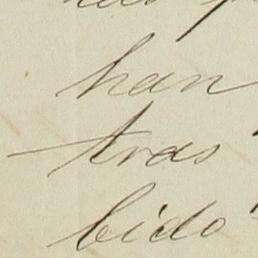 han
tras
bido